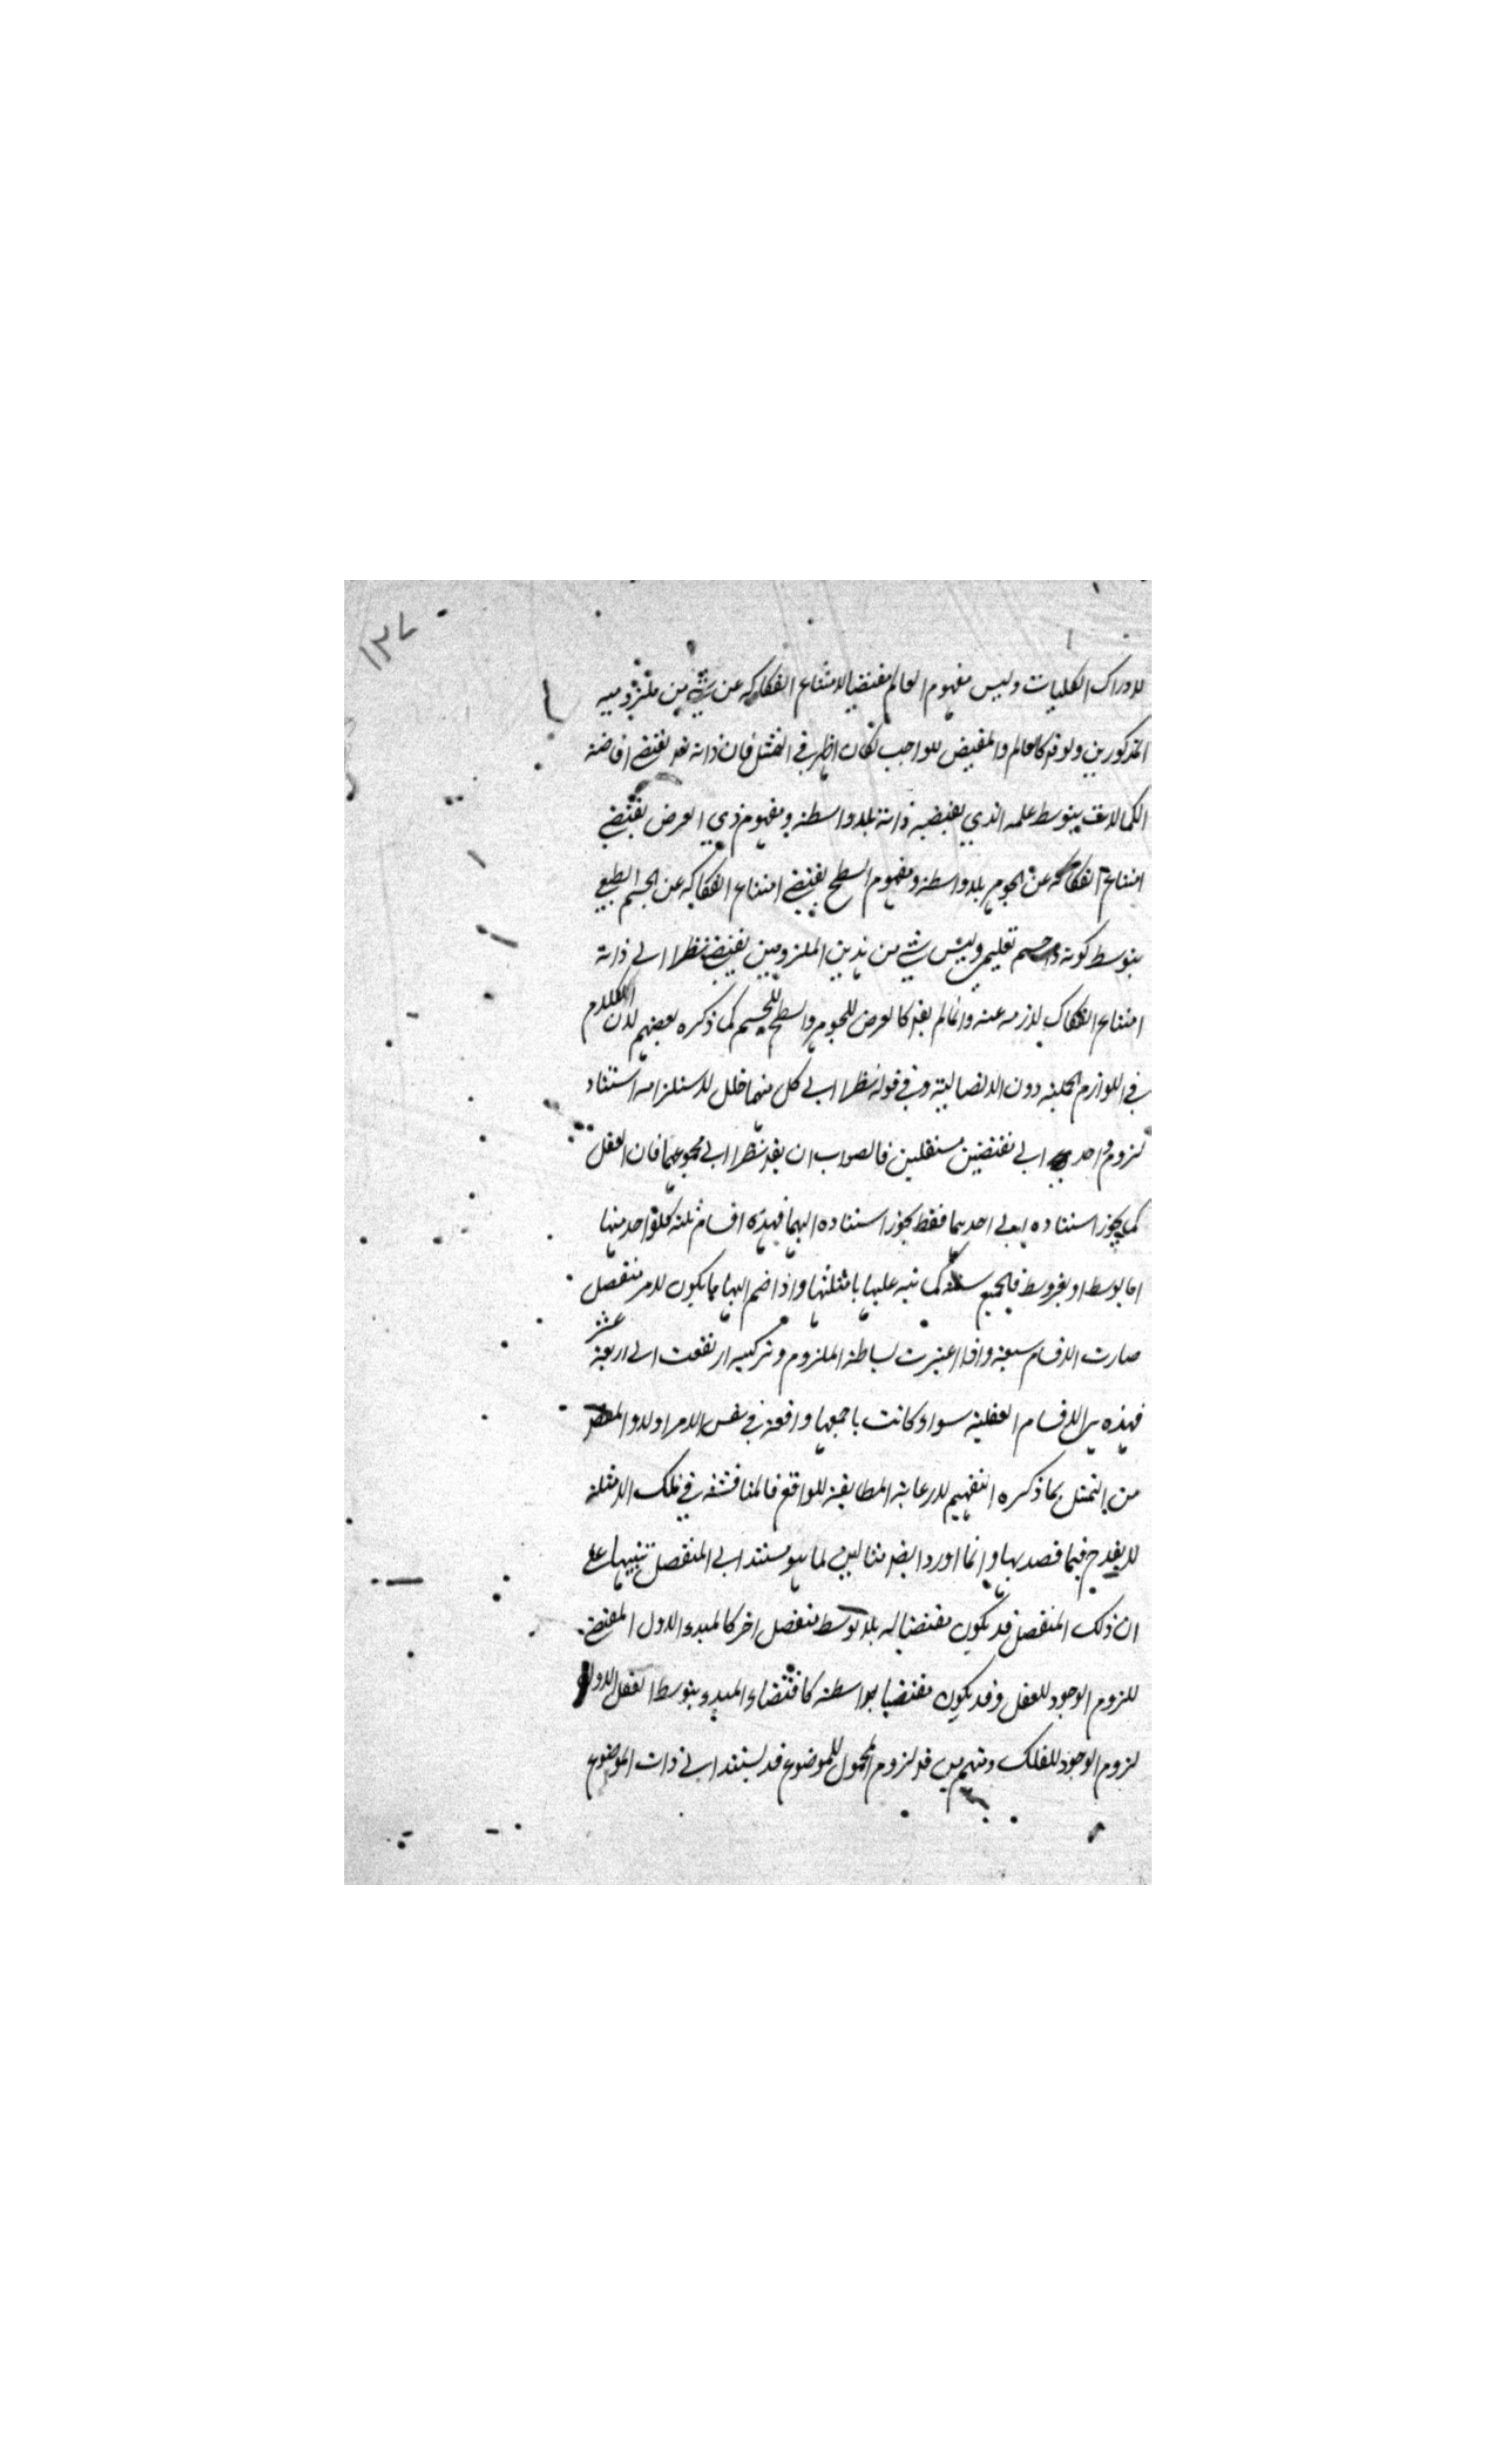 ١٣٧
لادراك الكليات وليس مفهوم العالم مقتضيا لامتناع انفكاكه عن شيء من ملزوميه
المذكورين ولو قيل كالعالم والمفيض للواجب لكان اظهر في التمثيل فان ذاته تعالى يقتضي افاضة
الكمالات بتوسط علمه الذي يقتضيه ذاته بلا واسطة ومفهوم ذي العرض يقتضي
امتناع انفكاكه عن الجوهر بلا واسطة ومفهوم السطح يقتضي امتناع انفكاكه عن الجسم الطبيعي
بتوسط كونه ذا جسم تعليمي وليس شيء من هذين الملزومين يقتضي نظرا الى ذاته
امتناع انفكاك لازمه عنه وانما لم يقل كالعرض للجوهر والسطح للجسم كما ذكره بعضهم لان الكلام
في اللوازم الحملية دون الاتصالية وفي قوله نظرا الى كل منهما خلل لاستلزامه استناد
لزوم واحد الى مقتضيين مستقلين فالصواب ان يقال نظرا الى مجموعهما فان العقل
كما يجوز استناده الى احدهما فقط يجوز استناده اليهما فهذه اقسام ثلثة كل واحد منها
اما بوسط او بغير وسط فالجميع ستة كما نبه عليها بامثلتها واذا ضم اليها ما يكون لامر منفصل
صارت الاقسام سبعة واذا اعتبرت بساطة الملزوم وتركيبه ارتفعت الى اربعة عشر
فهذه هي الاقسام العقلية سواء كانت باجمعها واقعة في نفس الامر اولا والمقصود
من التمثيل بما ذكره التفهيم لا رعاية المطابقة للواقع فالمناقشة في تلك الامثلة
لا يقدح فيما قصد بها وانما اورد ايضا مثالين لما هو مستند الى المنفصل تنبيها على
ان ذلك المنفصل قد يكون مقتضيا له بلا توسط منفصل اخر كالمبدء الاول المقتضي
للزوم الوجود للعقل وقد يكون مقتضيا بواسطة كاقتضاء المبدء بتوسط العقل الاول
لزوم الوجود للفلك ومنهم من قال لزوم المحمول للموضوع قد يستند الى ذات الموضوع